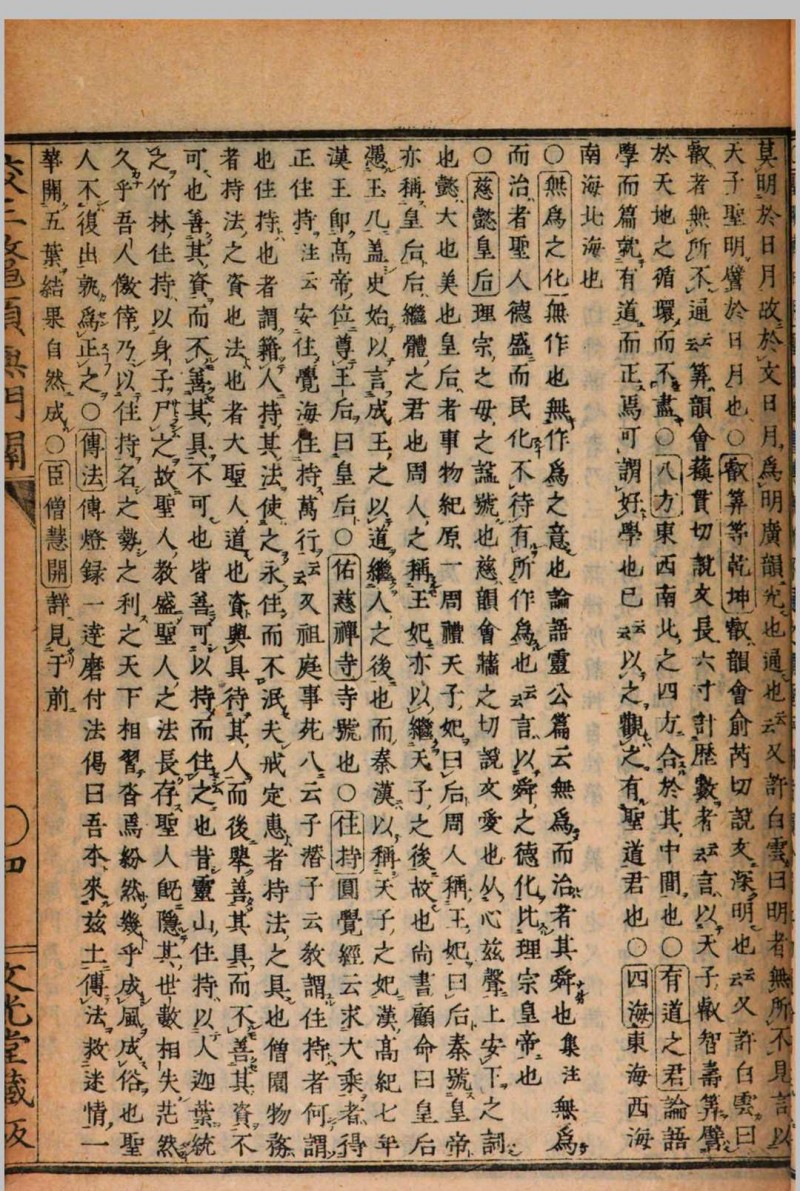 莫明於日月故於文日月為明廣韻光也通也云云又許白雲曰明者無所不見言以
天子聖明譬於日月也○叡筭等乾坤叡韻會俞芮切說文深明也云云又許白雲曰
叡者無所不通云云筭韻會蘇貫切說文長六寸計歷數者云云言以天子叡智壽筭譬
於天地之循環而不盡○八方東西南北之四方合於其中間也○有道之君論語
學而篇就有道而正焉可謂好學也已云云以之觀之有聖道君也○四海東海西海
南海北海也
○無為之化無作也無作為之意也論語靈公篇云無為而治者其舜也集註無為
而治者聖人德盛而民化不待有所作為也云云言以舜之德化比理宗皇帝也
○慈懿皇后理宗之母之謚號也慈韻會牆之切說文愛也从心茲聲上安下之詞
也懿大也美也皇后者事物紀原一周禮天子妃曰后周人稱王妃曰后秦號皇帝
亦稱皇后后繼體之君也周人之稱王妃亦以繼天子之後故也尚書顧命曰皇后
憑玉几盖史始以言成王之以道繼人之後也而秦漢以稱天子之妃漢高紀七年
漢王即高帝位尊王后曰皇后○佑慈禪寺寺號也○住持圓覺經云求大乘者得
正住持注云安住覺海住持萬行云云又祖庭事苑八云子潛子云教謂住持者何謂
也住持也者謂藉人持其法使之永住而不泯夫戒定惠者持法之具也僧園物務
者持法之資也法也者大聖人道也資與具待其人而後舉善其具而不善其資不
可也善其資而不善其具不可也皆善可以持而住之也昔靈山住持以人迦葉統
之竹林住持以身子尸之故聖人教盛聖人之法長存聖人既隱其世數相失茫然
久乎吾人儌倖乃以住持名之勢之利之天下相習沓焉紛然幾乎成風成俗也聖
人不復出孰為正之○傳法傳燈録一達磨付法偈曰吾本來茲土傳法救迷情一
華開五葉結果自然成○臣僧慧開詳見于前
鼇頭無門關
四
文光堂藏版